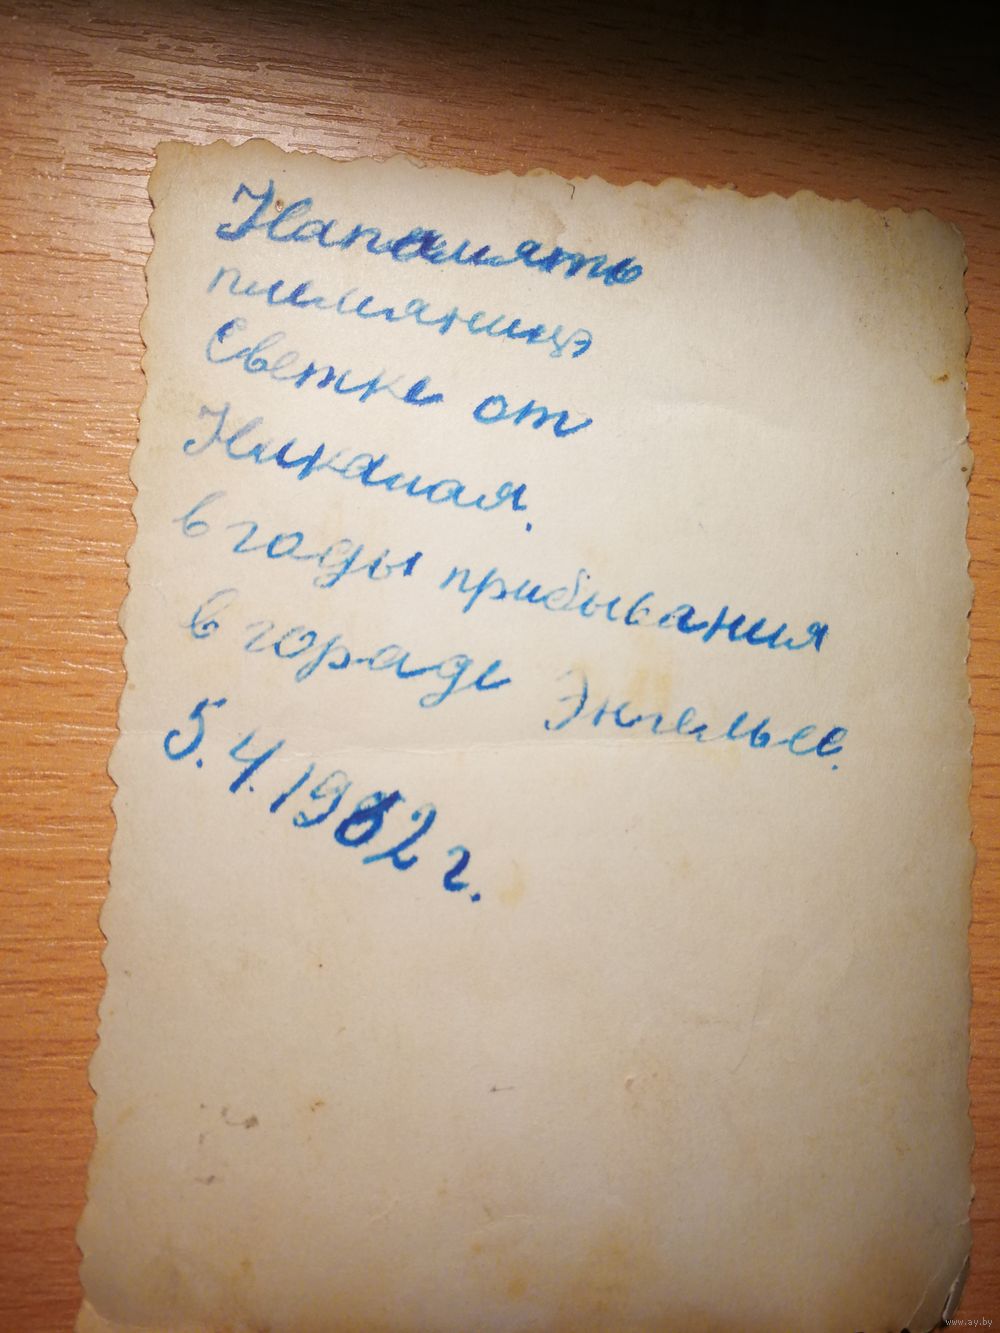 Напамять
племянице
Светке от
Никалая.
в годы прибывания
в гораде Энгельсе.
5.4.1962 г.
www.ay.by